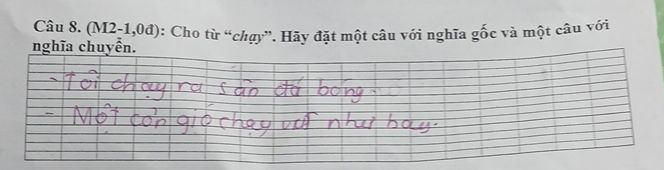 Câu 8. (M2-1,0đ): Cho từ “chạy”. Hãy đặt một câu với nghĩa gốc và một câu với
nghĩa chuyển.
- Tôi chạy ra sân đá bóng.
- Một cơn gió chạy như bay.